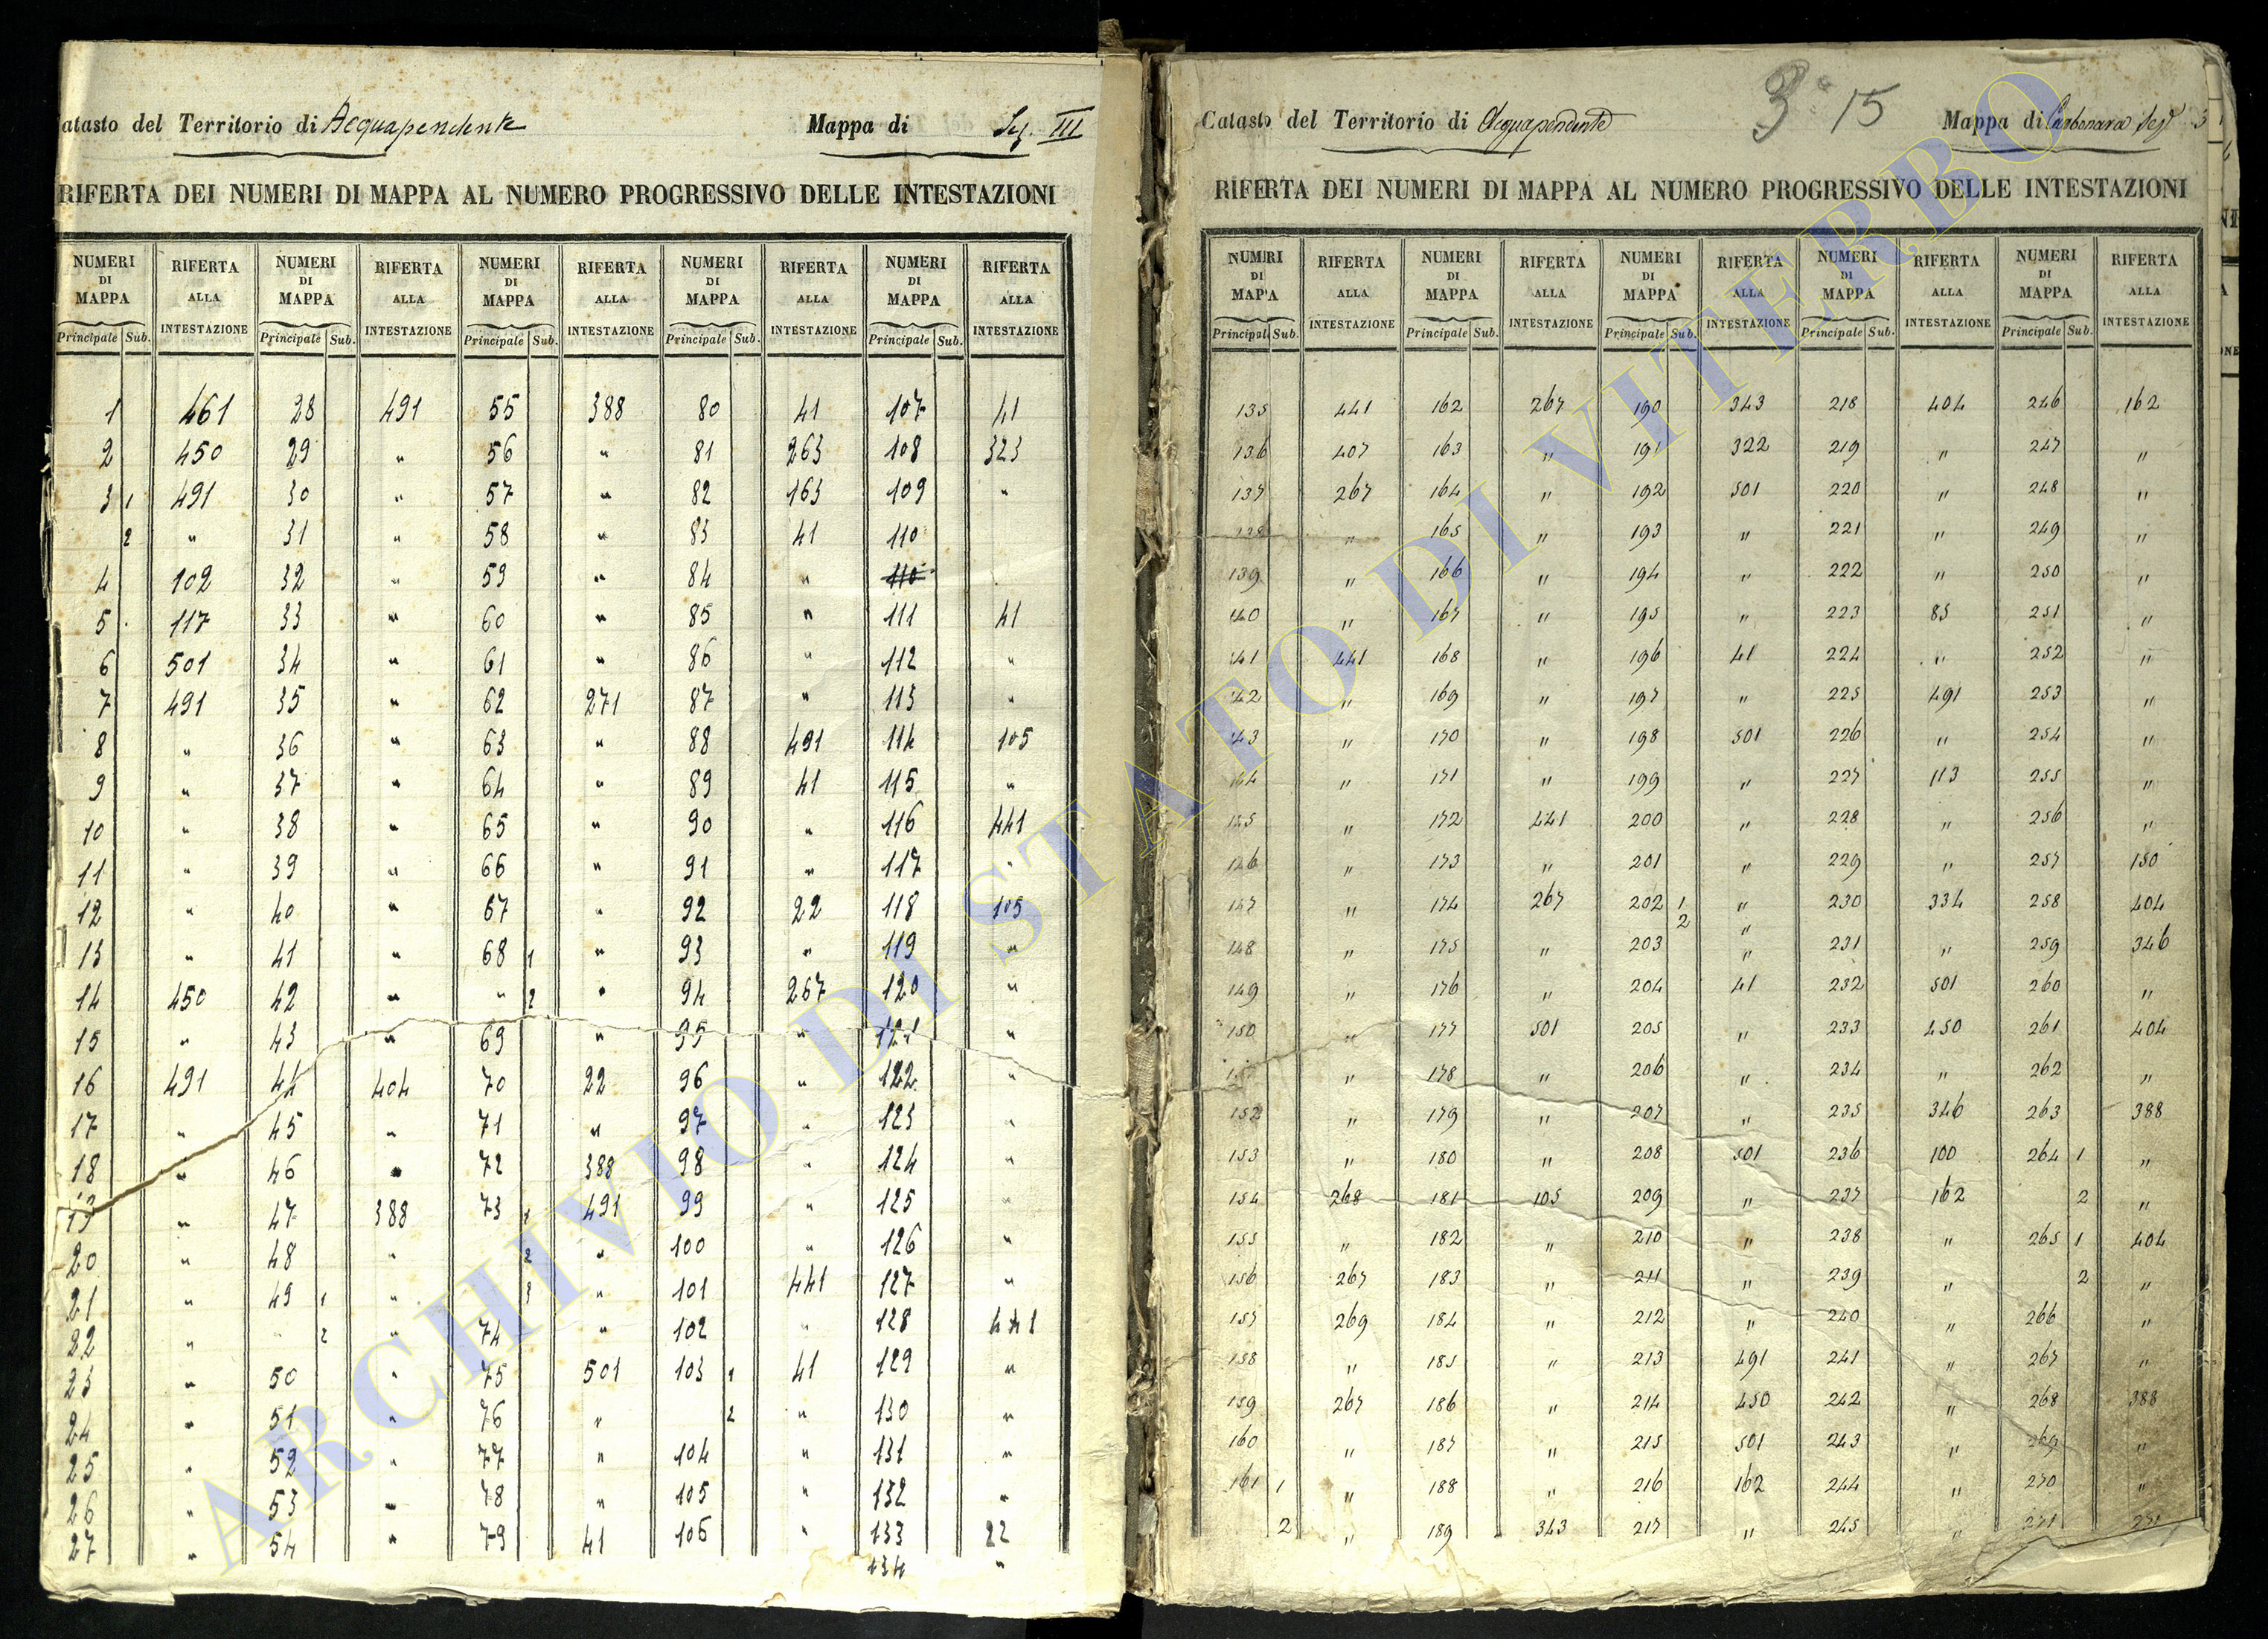 atasto del Territorio di Acquapendente Mappa di Sez. III
RIFERTA DEI NUMERI DI MAPPA AL NUMERO PROGRESSIVO DELLE INTESTAZIONI
NUMERI DI MAPPA RIFERTA ALLA INTESTAZIONE NUMERI DI MAPPA RIFERTA ALLA INTESTAZIONE NUMERI DI MAPPA RIFERTA ALLA INTESTAZIONE NUMERI DI MAPPA RIFERTA ALLA INTESTAZIONE NUMERI DI MAPPA RIFERTA ALLA INTESTAZIONE
Principale Sub. Principale Sub. Principale Sub. Principale Sub. Principale Sub.
1 461 28 491 55 388 80 41 107 41
2 450 29 " 56 " 81 263 108 323
3 1 491 30 " 57 " 82 163 109 "
2 " 31 " 58 " 83 41 110
4 102 32 " 59 " 84 " 110
5 117 33 " 60 " 85 " 111 41
6 501 34 " 61 " 86 " 112 "
7 491 35 " 62 271 87 " 113 "
8 " 36 " 63 " 88 491 114 105
9 " 37 " 64 " 89 41 115 "
10 " 38 " 65 " 90 " 116 441
11 " 39 " 66 " 91 " 117 "
12 " 40 " 67 " 92 22 118 105
13 " 41 " 68 1 " 93 " 119 "
14 450 42 " " 2 " 94 267 120 "
15 " 43 " 69 " 95 " 121 "
16 491 44 404 70 22 96 " 122 "
17 " 45 " 71 " 97 " 123 "
18 " 46 " 72 388 98 " 124 "
19 " 47 388 73 1 491 99 " 125 "
20 " 48 " 2 " 100 " 126 "
21 " 49 1 " 3 " 101 441 127 "
22 " " 2 " 74 " 102 " 128 441
23 " 50 " 75 501 103 1 41 129 "
24 " 51 " 76 " 2 " 130 "
25 " 52 " 77 " 104 " 131 "
26 " 53 " 78 " 105 " 132 "
27 " 54 " 79 41 106 " 133 22
134 "
Catasto del Territorio di Acquapendente 3ª 15 Mappa di Carbonara Sezе 3
RIFERTA DEI NUMERI DI MAPPA AL NUMERO PROGRESSIVO DELLE INTESTAZIONI
NUMERI DI MAPPA RIFERTA ALLA INTESTAZIONE NUMERI DI MAPPA RIFERTA ALLA INTESTAZIONE NUMERI DI MAPPA RIFERTA ALLA INTESTAZIONE NUMERI DI MAPPA RIFERTA ALLA INTESTAZIONE NUMERI DI MAPPA RIFERTA ALLA INTESTAZIONE
Principale Sub. Principale Sub. Principale Sub. Principale Sub. Principale Sub.
135 441 162 267 190 343 218 404 246 162
136 407 163 " 191 322 219 " 247 "
137 267 164 " 192 501 220 " 248 "
138 " 165 " 193 " 221 " 249 "
139 " 166 " 194 " 222 " 250 "
140 " 167 " 195 " 223 85 251 "
141 441 168 " 196 41 224 " 252 "
142 " 169 " 197 " 225 491 253 "
143 " 170 " 198 501 226 " 254 "
144 " 171 " 199 " 227 113 255 "
145 " 172 441 200 " 228 " 256 "
146 " 173 " 201 " 229 " 257 150
147 " 174 267 202 1 " 230 334 258 404
2 "
148 " 175 " 203 " 231 " 259 346
149 " 176 " 204 41 232 501 260 "
150 " 177 501 205 " 233 450 261 404
151 " 178 " 206 " 234 " 262 "
152 " 179 " 207 " 235 346 263 388
153 " 180 " 208 501 236 100 264 1 "
154 268 181 105 209 " 237 162 2 "
155 " 182 " 210 " 238 " 265 1 404
156 267 183 " 211 " 239 " 2 "
157 269 184 " 212 " 240 " 266 "
158 " 185 " 213 491 241 " 267 "
159 267 186 " 214 450 242 " 268 388
160 " 187 " 215 501 243 " 269 "
161 1 " 188 " 216 162 244 " 270 "
2 " 189 343 217 " 245 " 271 271
ARCHIVIO DI STATO DI VITERBO